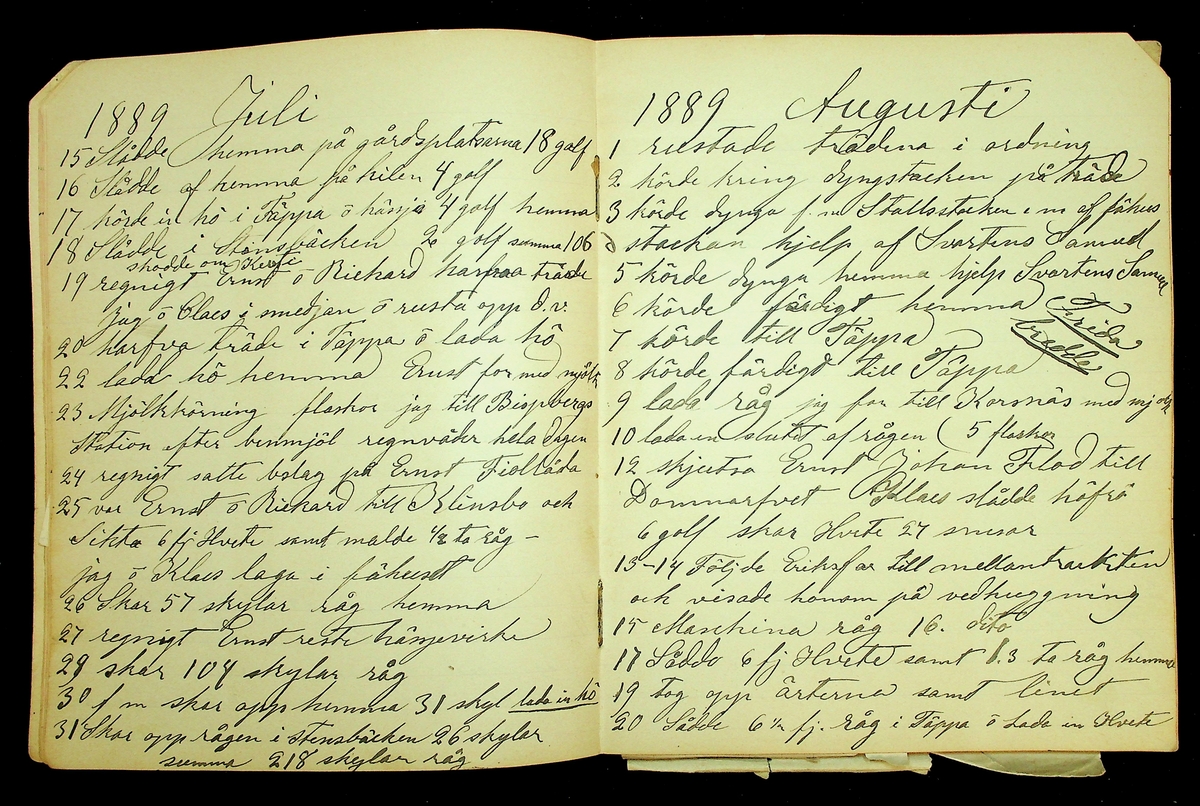 1889 Juli
15 Slådde hemma på gårdsplatserna 18 golf
16 Slådde af hemma på kilen 4 golf
17 körde in hö i Täppa ö hänja 4 golf hemma
18 Slådde i Stensbäcken 26 golf summa 106
skodde om
19 regnigt Ernst ö Rickard harfva träde
jag ö Claes i smedjan ö rusta opp d.v.
20 harfva träde i Täppa ö lada hö
22 lada hö hemma Ernst for med mjölk
23 Mjölkkörning flaskor jag till Bispbergs
Station efter benmjöl regnväder hela dagen
24 regnigt satte bolag på Ernst Fiollåda
25 var Ernst ö Rickard till Klinsbo och
Sikta 6 fj Hvete samt malde 1/2 ta råg –
jag ö Klaes laga i fähuset
26 Skar 57 skylar råg hemma
27 regnigt Ernst reste hässjevirke
29 skar 104 skylar råg
30 f m skar opp hemma 31 skyl lada in hö
31 Skar opp rågen i Stensbäcken 26 skylar
summa 218 skylar råg
1889 Augusti
1 rustade trädena i ordning
2 körde kring dyngstacken på träde
3 körde dynga f. m Stallsstacken e m af fähus
stackan hjelp af Svartens Samuel
5 körde dynga hemma hjelp Svartens Samuel
6 körde färdigt hemma Frida
bredde
7 körde till Täppa
8 körde färdigt till Täppa
9 lada råg jag for till Korsnäs med mjölk
10 lada en slutet af rågen (5 flaskor
12 skjutsa Ernst Johan Flod till
Domnarfvet Klaes slådde höfrö
6 golf skar Hvete 27 snesar
13-14 Följde Eriksfar till mellantrakten
och visade honom på vedhuggning
15 Maschina råg 16. dito
17 Sådde 6 fj Hvete samt 3 ta råg hemma
19 tog opp ärterna samt linet
20 Sådde 6 1/2 fj. råg i Täppa ö Lada in Hvete